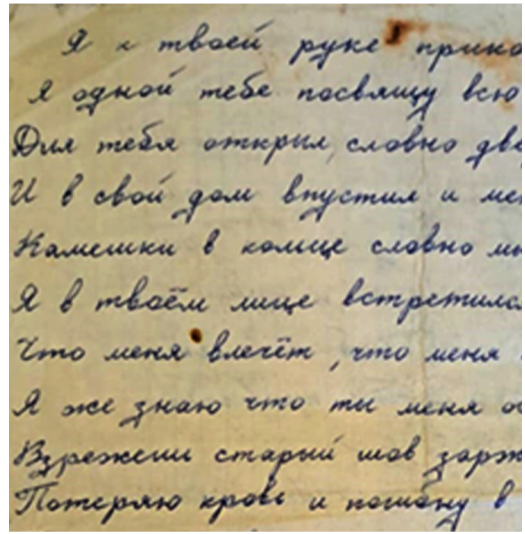 Я к твоей руке прико
Я одной тебе посвящу всю
Для тебя открыл, словно две
И в свой дом впустил и ме
Камешки в кольце словно мы
Я в твоём лице встретился
Что меня влечёт, что меня
Я же знаю что ты меня о
Взрежеши старый шов зарж
Потеряю кровь и погибну в